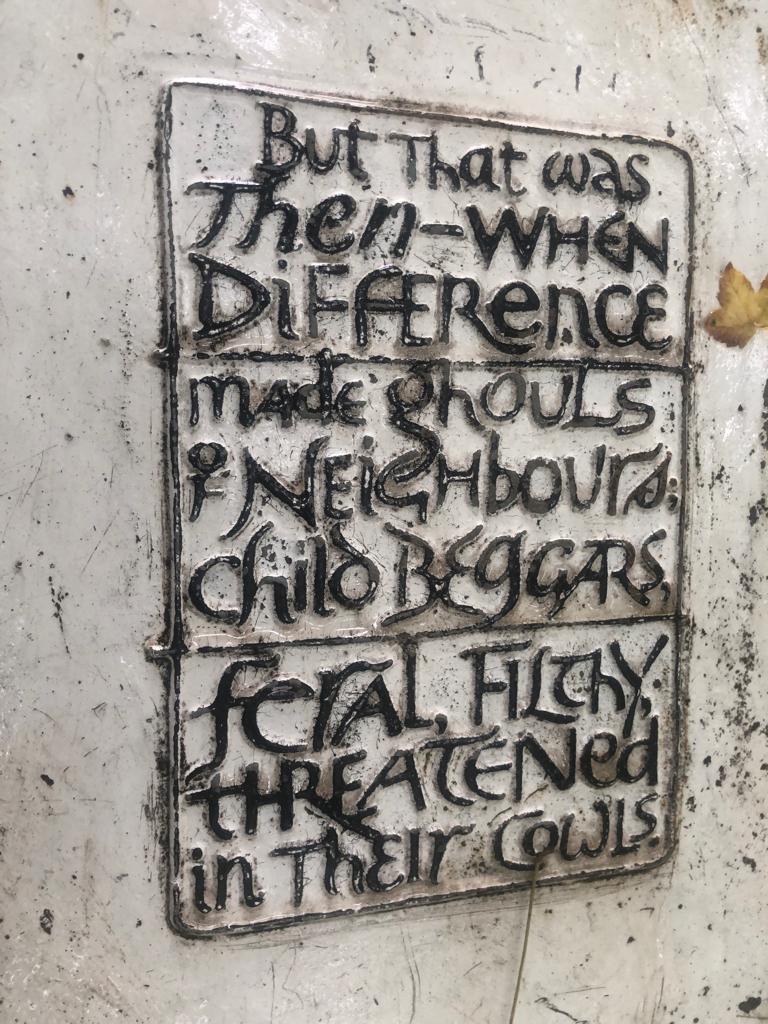 But That was
Then–WHEN
DiFFERence
made ghouls
oF NEiGHbours;
child BEGGARS,
feral, FILthy,
tHREATENed
in Their COWLS.